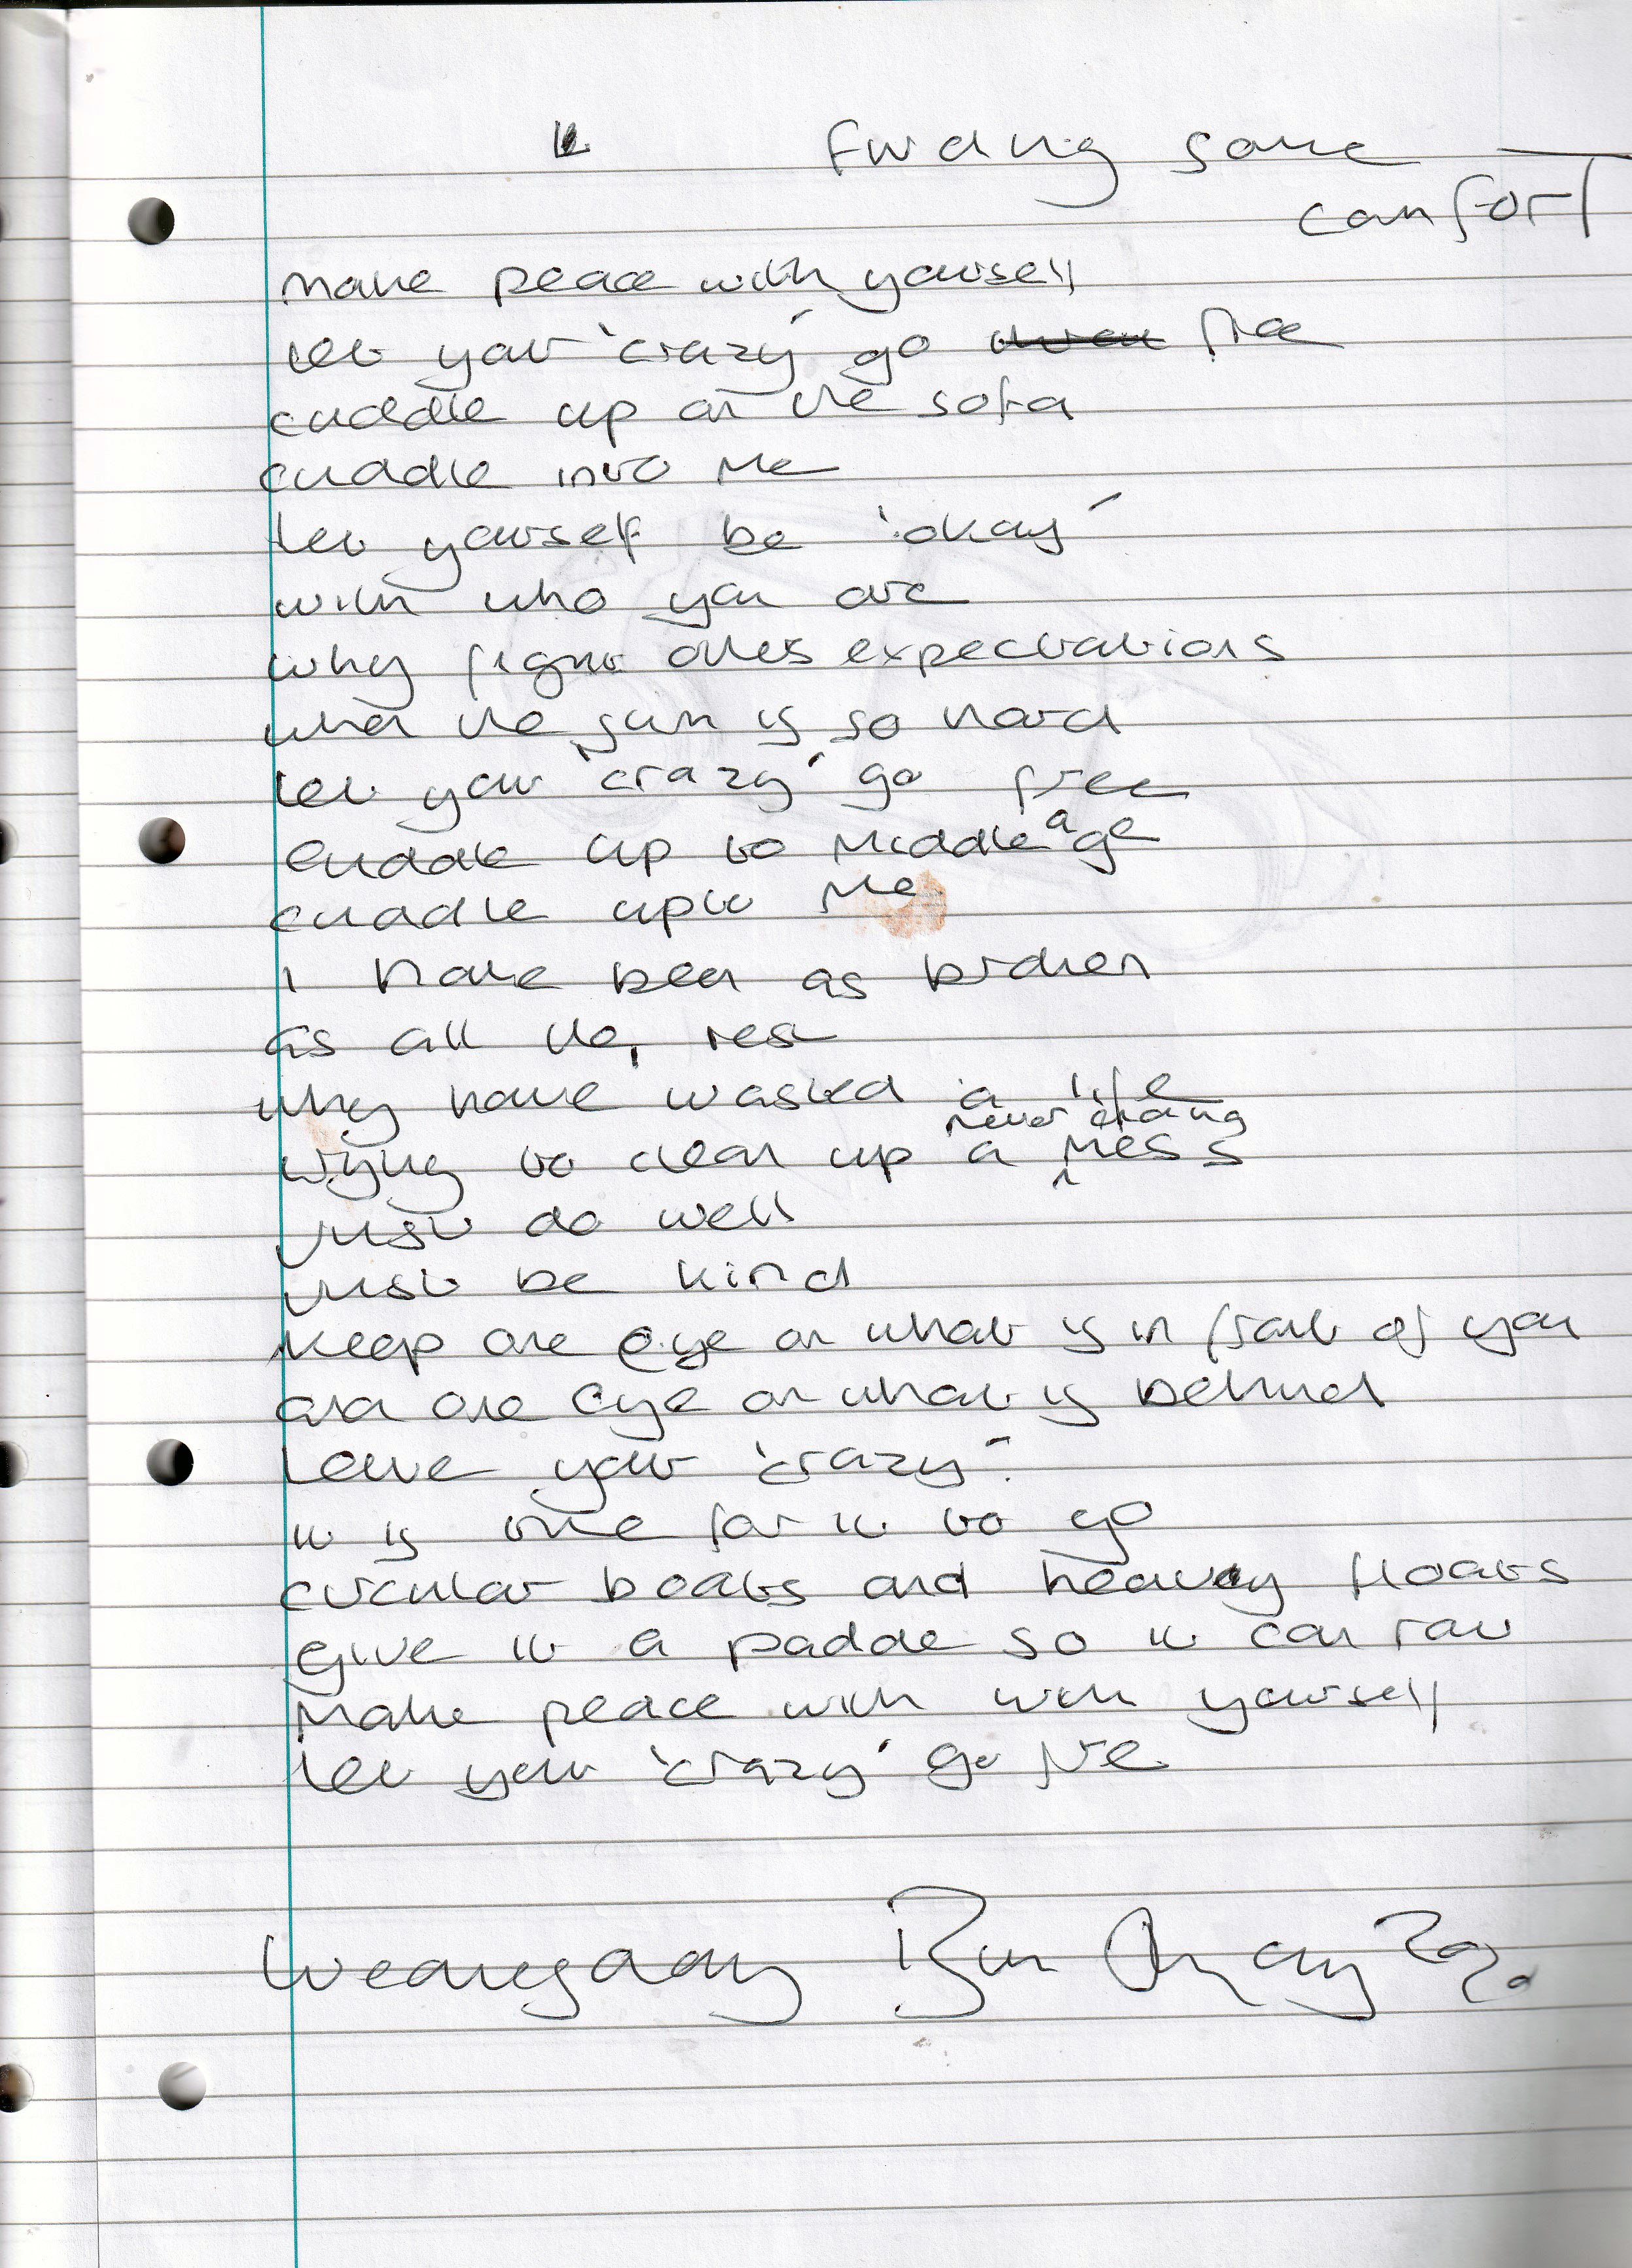 Finding some
comfort
make peace with yourself
let your 'crazy' go free
cuddle up on the sofa
cuddle into me
let yourself be 'okay'
with who you are
why fight others expectations
when the sum is so hard
let your 'crazy' go free
cuddle up to middle age
cuddle up to me
I have been as broken
as all the rest
why have wasted a life
never ending
trying to clear up a mess
just do well
just be kind
keep one eye on what is in front of you
and one eye on what is behind
leave your 'crazy'.
it is time for it to go
circular boats and heavy floats
give it a paddle so it can row
make peace with with yourself
let your 'crazy' go free
Wednesday